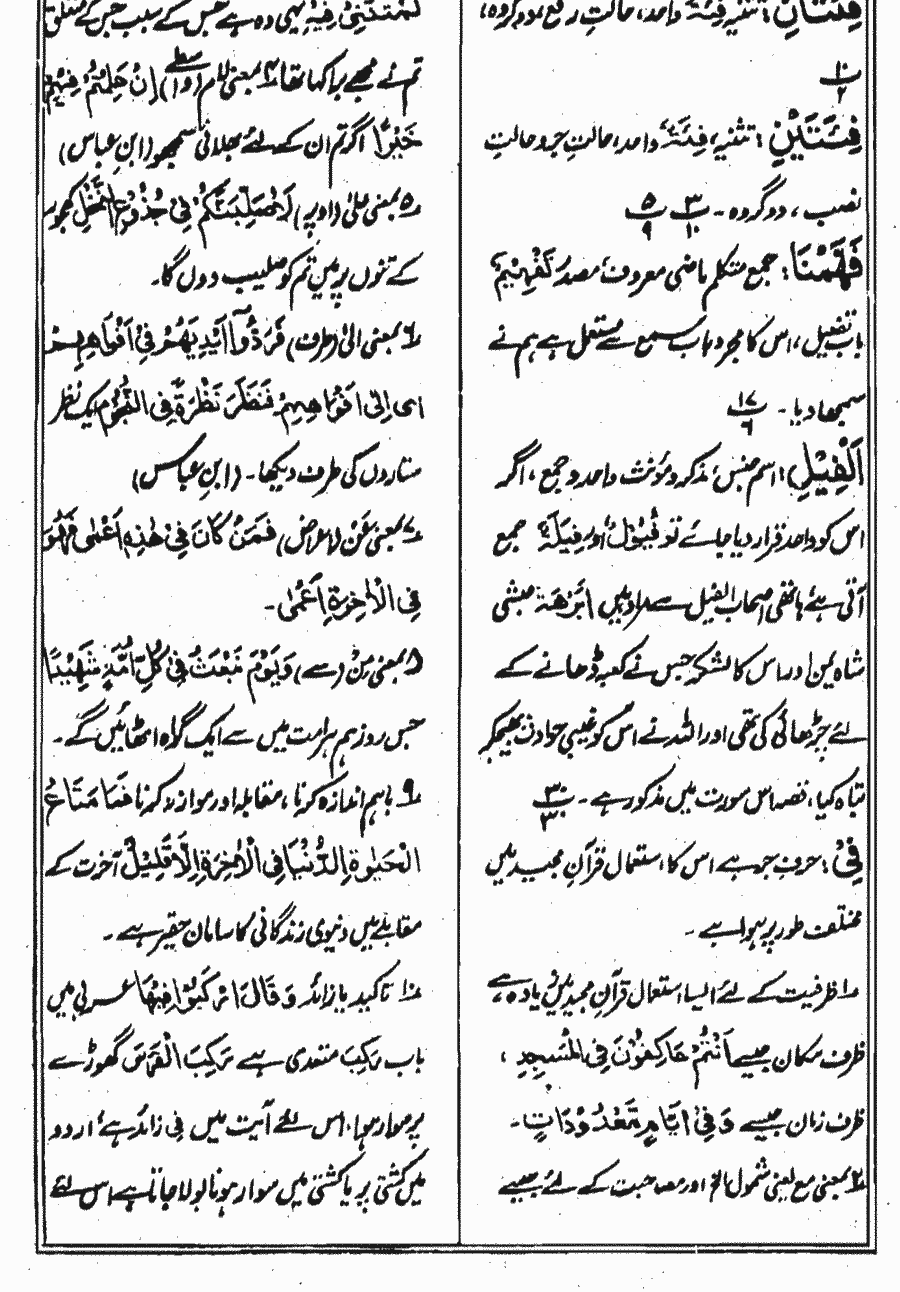 فِئَتَانِ: تثنیہ فِئَۃٌ واحد، حالتِ رفع، دو گروہ،
۱۰/۲
فِئَتَیْنِ: تثنیہ، فِئَۃٌ واحد، حالتِ جر و حالتِ
نصب، دو گروہ۔ ۳/۱۰ ۵/۹
فَهَّمْنَا: جمع متکلم ماضی معروف، مصدر تَفْهِیْمٌ
باب تفعیل، اس کا مجرد باب سمع سے مستعمل ہے ہم نے
سمجھا دیا۔ ۱۷/۶
اَلْفِیْلِ: اسم جنس، مذکر و مؤنث واحد و جمع، اگر
اس کو واحد قرار دیا جائے تو فُیُوْلٌ اور فِیَلَۃٌ جمع
آتی ہے، ہاتھی اصحاب الفیل سے مراد ہیں اَبْرَھَۃ حبشی
شاہ یمن اور اس کا لشکر جس نے کعبہ ڈھانے کے
لئے چڑھائی کی تھی اور اللہ نے اس کو غیبی حوادث بھیجکر
تباہ کیا، قصہ اس سورت میں مذکور ہے۔ ۳۰/۳۰
فِیْ: حرفِ جر ہے اس کا استعمال قرآنِ مجید میں
مختلف طور پر ہوا ہے۔
۱؎ ظرفیت کے لئے ایسا استعمال قرآنِ مجید میں زیادہ ہے،
ظرف مکان جیسے اَنْتُمْ عَاکِفُوْنَ فِی الْمَسٰجِدِ،
ظرف زمان جیسے وَفِیْ اَیَّامٍ مَّعْدُوْدَاتٍ۔
۲؎ بمعنی مع یعنی شمول اور مصاحبت کے لئے جیسے
لُمْتُنَّنِیْ فِیْہِ یہی وہ ہے جس کے سبب جس کے متعلق
تم نے مجھے برا کہا تھا ۴؎ بمعنی لام (واسطے) اِنْ عَلِمْتُمْ فِیْهِمْ
خَیْرًا اگر تم ان کے لئے بھلائی سمجھو (ابن عباس)
۵؎ بمعنی علیٰ (اوپر) لَاُصَلِّبَنَّکُمْ فِیْ جُذُوْعِ النَّخْلِ کھجور
کے تنوں پر میں تم کو صلیب دوں گا۔
۶؎ بمعنی الیٰ (طرف) فَرَدُّوْا اَیْدِیَهُمْ فِیْ اَفْوَاهِهِمْ
ای اِلٰی اَفْوَاهِهِمْ فَنَظَرَ نَظْرَۃً فِی النُّجُوْمِ ایک نظر
ستاروں کی طرف دیکھا۔ (ابنِ عباس)
۷؎ بمعنی عَنْ (اعراض) فَمَنْ کَانَ فِیْ هٰذِهٖ اَعْمٰی فَهُوَ
فِی الْاٰخِرَةِ اَعْمٰی۔
۸؎ بمعنی مِنْ (سے) وَیَوْمَ نَبْعَثُ فِیْ کُلِّ اُمَّةٍ شَهِیْدًا
جس روز ہم ہر امت میں سے ایک گواہ اٹھائیں گے۔
۹؎ باہم اندازہ کرنا، مقابلہ اور موازنہ کرنا فَمَا مَتَاعُ
الْحَیٰوةِ الدُّنْیَا فِی الْاٰخِرَةِ اِلَّا قَلِیْلٌ آخرت کے
مقابلے میں دنیوی زندگانی کا سامان حقیر ہے۔
۱۰؎ تاکید یا زائد وَقَالَ ارْکَبُوْا فِیْهَا عربی میں
باب رَکِبَ متعدی ہے رَکِبَ الْفَرَسَ گھوڑے
پر سوار ہوا، اس لئے آیت میں فی زائد ہے، اردو
میں کشتی پر یا کشتی میں سوار ہونا بولا جاتا ہے اس لئے